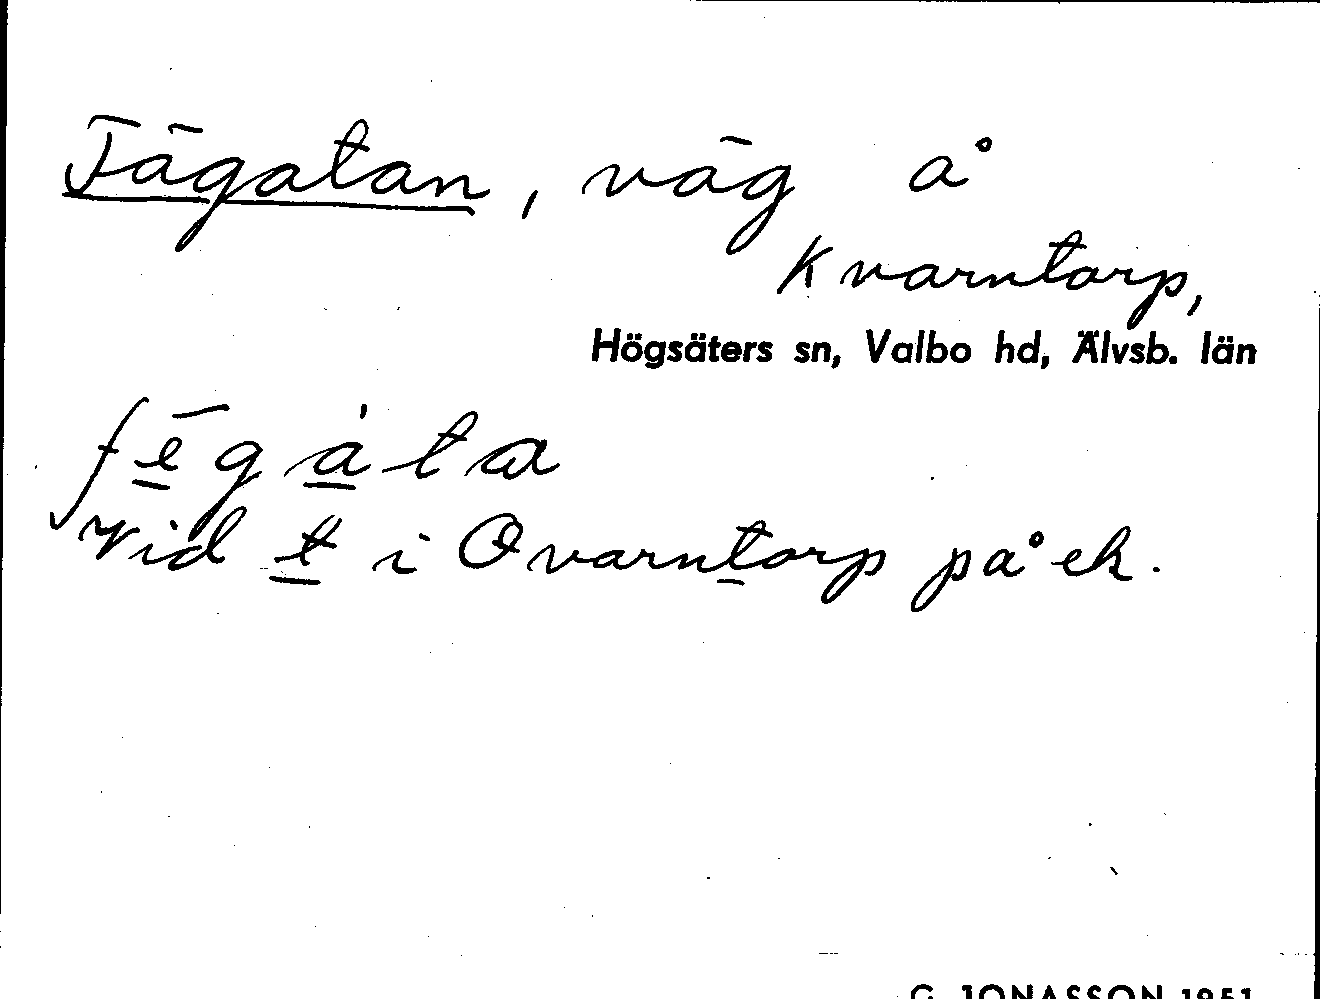 Fägatan, väg å
Kvarntorp,
Högsäters sn, Valbo hd, Älvsb. län
fe̲̅ga̲̍ta
Vid t̲ i Qvarnt̲orp på ek.
G. JONASSON 1951